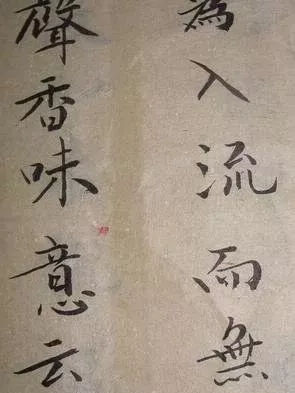 為入流而無
聲香味意云